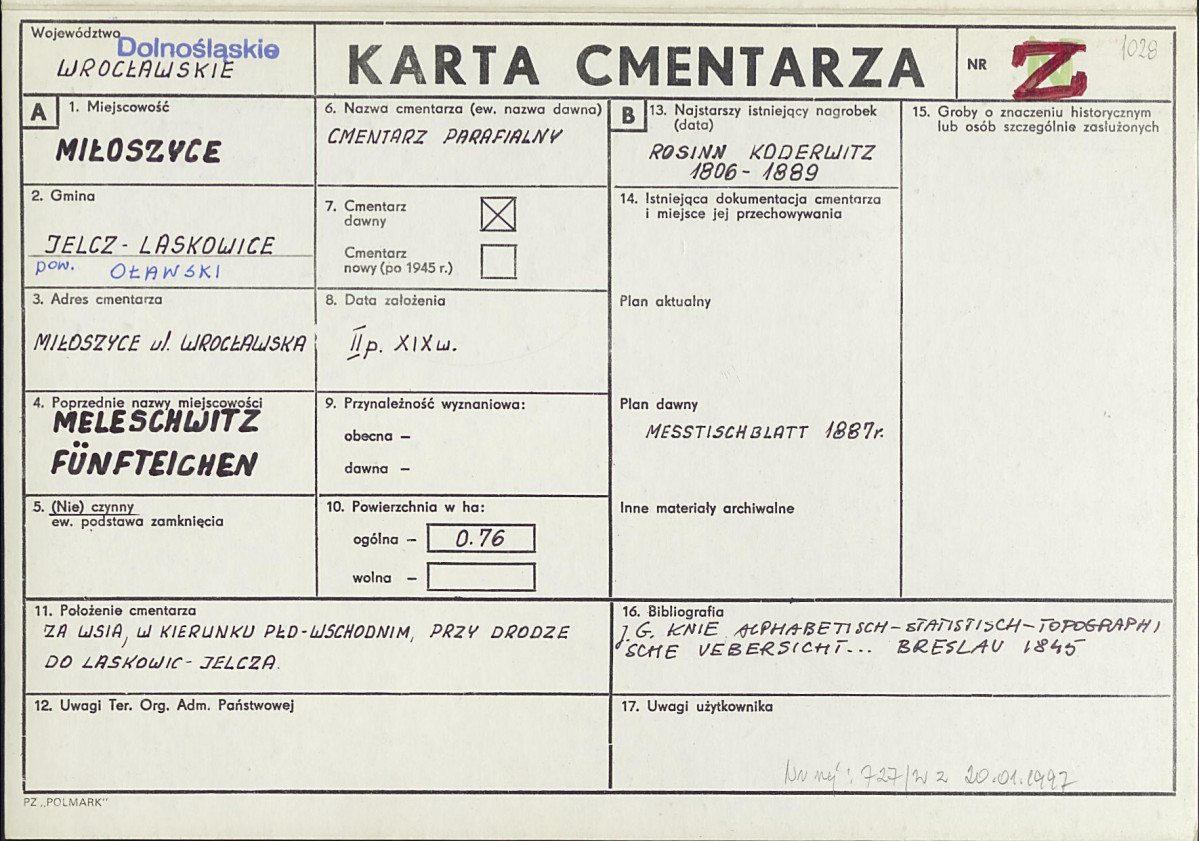 Województwo
Dolnośląskie
WROCŁAWSKIE
KARTA CMENTARZA
NR
Z
1028
A
1. Miejscowość
MIŁOSZYCE
2. Gmina
JELCZ-LASKOWICE
pow. OŁAWSKI
3. Adres cmentarza
MIŁOSZYCE ul. WROCŁAWSKA
4. Poprzednie nazwy miejscowości
MELESCHWITZ
FÜNFTEICHEN
5. (Nie) czynny
ew. podstawa zamknięcia
6. Nazwa cmentarza (ew. nazwa dawna)
CMENTARZ PARAFIALNY
7. Cmentarz
dawny
Cmentarz
nowy (po 1945 r.)
8. Data założenia
II p. XIX w.
9. Przynależność wyznaniowa:
obecna –
dawna –
10. Powierzchnia w ha:
ogólna – 0.76
wolna –
B
13. Najstarszy istniejący nagrobek
(data)
ROSINN KODERWITZ
1806 - 1889
14. Istniejąca dokumentacja cmentarza
i miejsce jej przechowywania
Plan aktualny
Plan dawny
MESSTISCHBLATT 1887r.
Inne materiały archiwalne
15. Groby o znaczeniu historycznym
lub osób szczególnie zasłużonych
11. Położenie cmentarza
ZA WSIĄ, W KIERUNKU PŁD-WSCHODNIM, PRZY DRODZE
DO LASKOWIC-JELCZA.
16. Bibliografia
J.G. KNIE ALPHABETISCH-STATISTISCH-TOPOGRAPHI
SCHE UEBERSICHT... BRESLAU 1845
12. Uwagi Ter. Org. Adm. Państwowej
17. Uwagi użytkownika
Nr rej: 727/W z 20.01.1997
PZ „POLMARK"